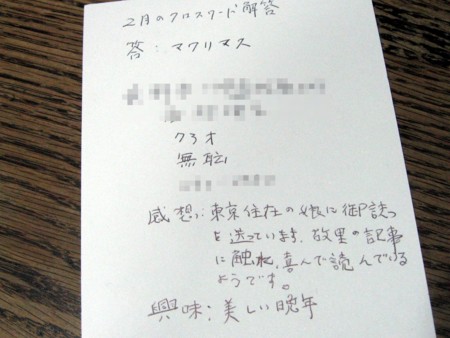 2月のクロスワード解答
答:マワリマス
無職
感想:東京住在の娘に御誌
を送っています。故里の記事
に触れ、喜んで読んでいる
ようです。
興味:美しい晩年